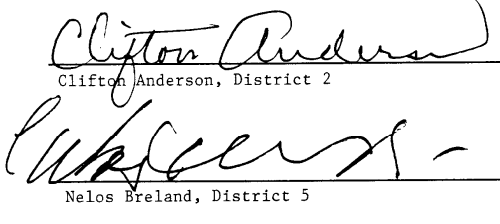 Clifton Anderson
Clifton Anderson, District 2
Nelos Breland, District 5